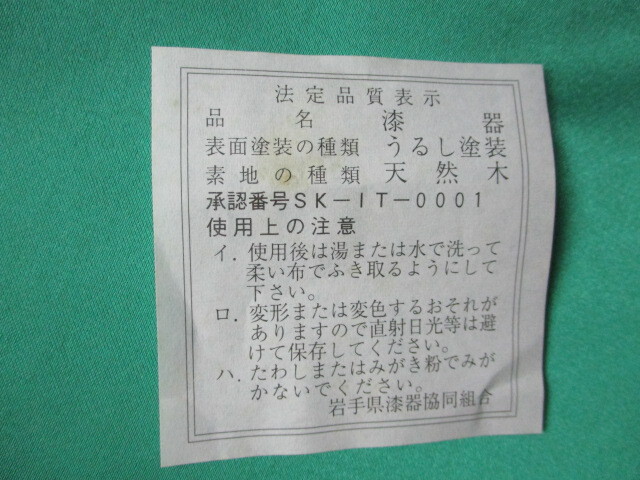 法定品質表示
品名 漆器
表面塗装の種類 うるし塗装
素地の種類 天然木
承認番号SK－IT－0001
使用上の注意
イ．使用後は湯または水で洗って
柔い布でふき取るようにして
下さい。
ロ．変形または変色するおそれが
ありますので直射日光等は避
けて保存してください。
ハ．たわしまたはみがき粉でみが
かないでください。
岩手県漆器協同組合